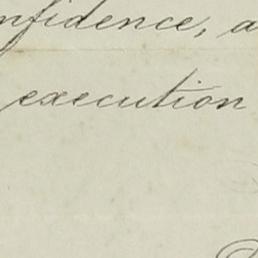 nfidence, a
execution